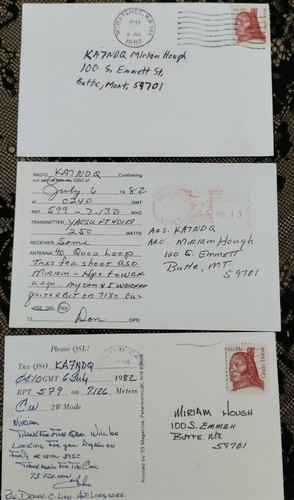 WENATCHEE, WA
PM
KA7NDQ Miriam Hough
100 S. Emmett St,
Butte, Mont. 59701
RADIO KA7NDQ Confirming
QSO OF
July 6 1982
AT 0240 GMT
RST 599 - 7.130 MHZ
TRANSMITTER YAESU FT401B
250 WATTS
RECEIVER Same
ANTENNA 40 Quad Loop
Tnks for short QSO
Miriam - Hpe to WRK
again. my son & I worked
quite a bit on 7130
PSE QSL TNX
73 Don OPR.
ARS. KA7NDQ
ARO. MIRIAM Hough
100 S. EMMETT
Butte, MT
59701
Please QSL!
Tnx QSO KA7NDQ
GMT 6 July 1982
RPT 579 on 7.126 Meters
CW 2W Mode
MIRIAM
THANK FOR FINE QSO. Will be
Looking for you Again on
THANK AGAIN FOR THE CALL
73 FOR NOW
Printed by 73 Magazine, Peterborough, NH 03458
MIRIAM HOUGH
100 S. EMMETT
BUTTE. MT
59701